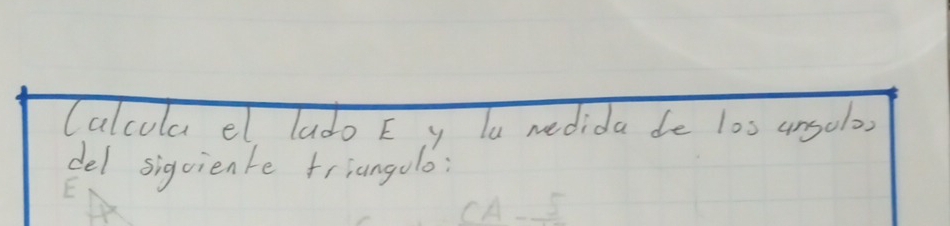 Calcula el lado E y la medida de los angulos
del siguiente triangulo:
E
CA 5